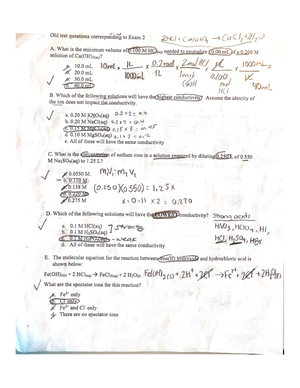 Old test questions corresponding to Exam 2
2HCl + Ca(OH)₂ → CaCl₂ + 2H₂O
A. What is the minimum volume of 0.100 M HCl(aq) needed to neutralize 10.0 mL of a 0.200 M
solution of Ca(OH)₂(aq)?
a. 10.0 mL
b. 20.0 mL
c. 30.0 mL
d. 40.0 mL
B. Which of the following solutions will have the highest conductivity? Assume the identity of
the ion does not impact the conductivity.
a. 0.20 M KNO₃(aq) 0.2×2 = 0.4
b. 0.20 M NaCl(aq) 0.2×2 = 0.4
c. 0.15 M 0.15×3 = 0.45
d. 0.10 M MgSO₄(aq) 0.1×2 = 0.2
e. All of these will have the same conductivity
C. What is the concentration of sodium ions in a solution prepared by diluting 0.250 L of 0.550
M Na₂SO₄(aq) to 1.25 L?
a. 0.0550 M M₁V₁ = M₂V₂
b. 0.110 M
c. 0.138 M (0.250)(0.550) = 1.25x
d. 0.220 M
e. 0.275 M x = 0.11 × 2 = 0.220
D. Which of the following solutions will have the LOWEST conductivity?
Strong acids
HNO₃, HClO₄, HI,
HCl, H₂SO₄, HBr
a. 0.1 M HCl(aq) strong
b. 0.1 M H₂SO₄(aq)
c. 0.1 M - weak
d. All of these will have the same conductivity
E. The molecular equation for the reaction between iron(II) hydroxide and hydrochloric acid is
shown below:
Fe(OH)₂(s) + 2 HCl(aq) → FeCl₂(aq) + 2 H₂O(l)
What are the spectator ions for this reaction?
a. Fe²⁺ only
b. Cl⁻ only
c. Fe²⁺ and Cl⁻ only
d. There are no spectator ions